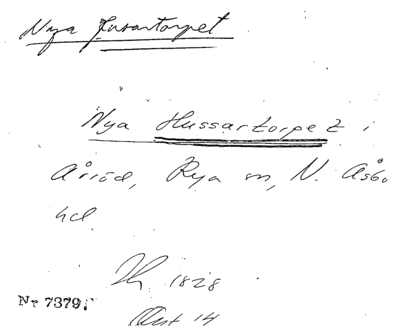 Nya Husartorpet
Nya Hussartorpet i
Årröd, Rya sn, N. Åsbo
hd
1828
Nr 7379.
14